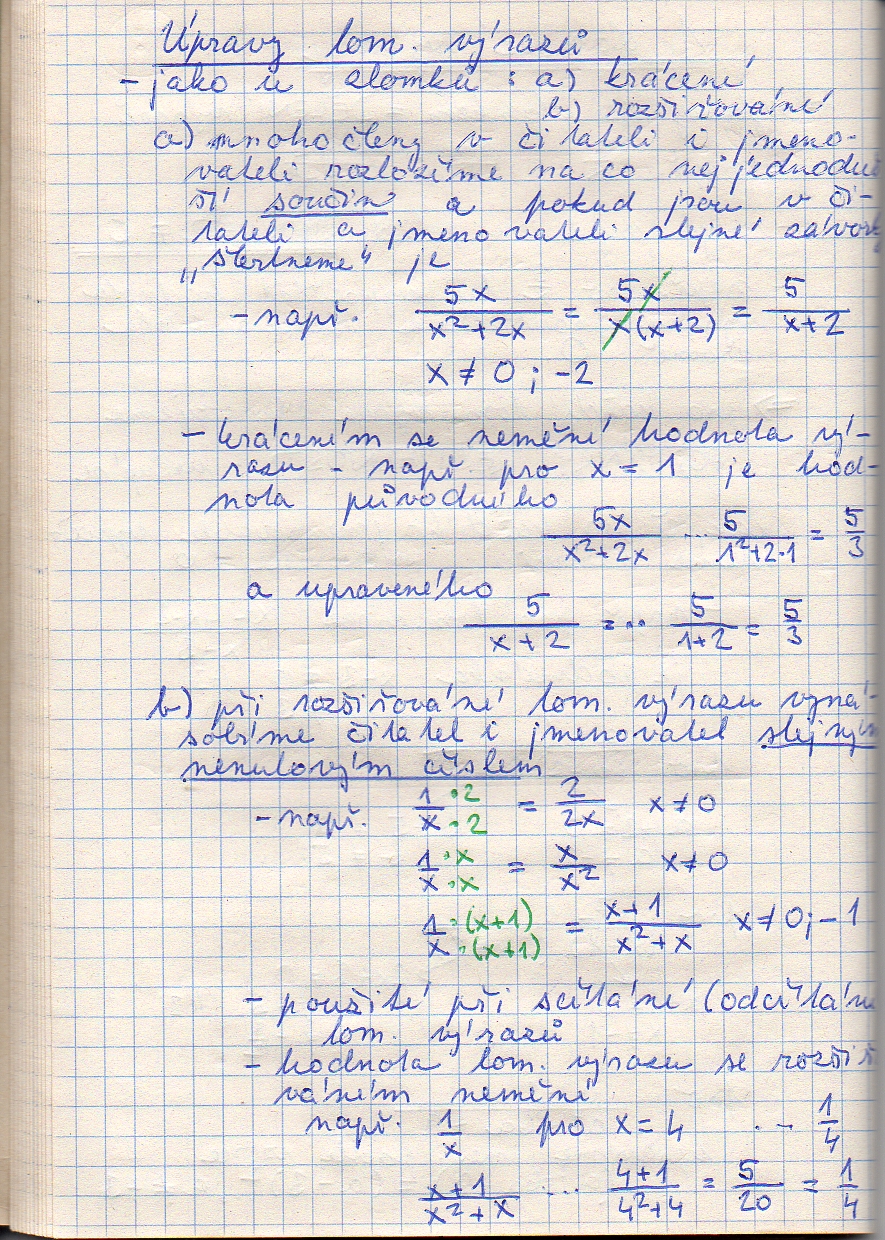 Úpravy lom. výrazů
- jako u zlomků : a) krácení
b) rozšiřování
a) mnohočleny v čitateli i jmeno-
vateli rozložíme na co nejjednoduš
ší součin a pokud jsou v či-
tateli a jmenovateli stejné závorky
„škrtneme" je
- např. 5x/(x²+2x) = 5x/(x(x+2)) = 5/(x+2)
x ≠ 0 ; -2
- krácením se nemění hodnota vý-
razu - např. pro x = 1 je hod-
nota původního
5x/(x²+2x) ... 5/(1²+2·1) = 5/3
a upraveného
5/(x+2) = ... 5/(1+2) = 5/3
b) při rozšiřování lom. výrazu vyná-
sobíme čitatel i jmenovatel stejným
nenulovým číslem
- např. 1·2/(x·2) = 2/(2x) x ≠ 0
1·x/(x·x) = x/x² x ≠ 0
1·(x+1)/(x·(x+1)) = (x+1)/(x²+x) x ≠ 0; -1
- použití při sčítání (odčítání
lom. výrazů
- hodnota lom. výrazu se rozšiř
váním nemění
např. 1/x pro x = 4 ... 1/4
(x+1)/(x²+x) ... (4+1)/(4²+4) = 5/20 = 1/4